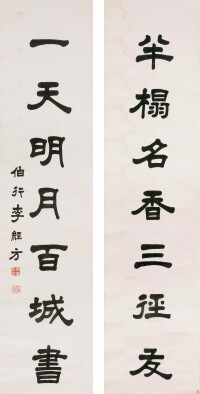 半榻名香三径友
一天明月百城書
伯行李經方